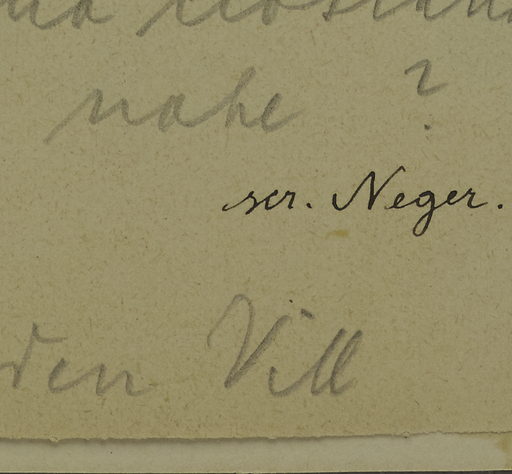 nahe ?
scr. Neger.
den Vill